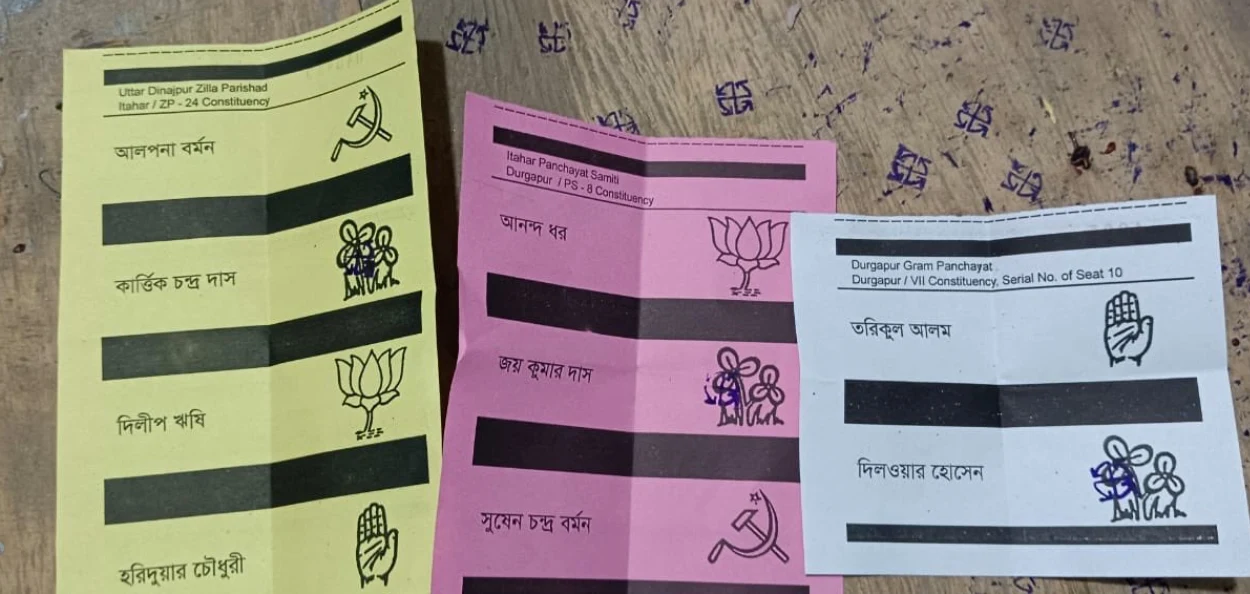 Uttar Dinajpur Zilla Parishad
Itahar / ZP - 24 Constituency
আলপনা বর্মন
কার্ত্তিক চন্দ্র দাস
দিলীপ ঋষি
হরিদুয়ার চৌধুরী
Itahar Panchayat Samiti
Durgapur / PS - 8 Constituency
আনন্দ ধর
জয় কুমার দাস
সুষেন চন্দ্র বর্মন
Durgapur Gram Panchayat
Durgapur / VII Constituency, Serial No. of Seat 10
তরিকুল আলম
দিলওয়ার হোসেন